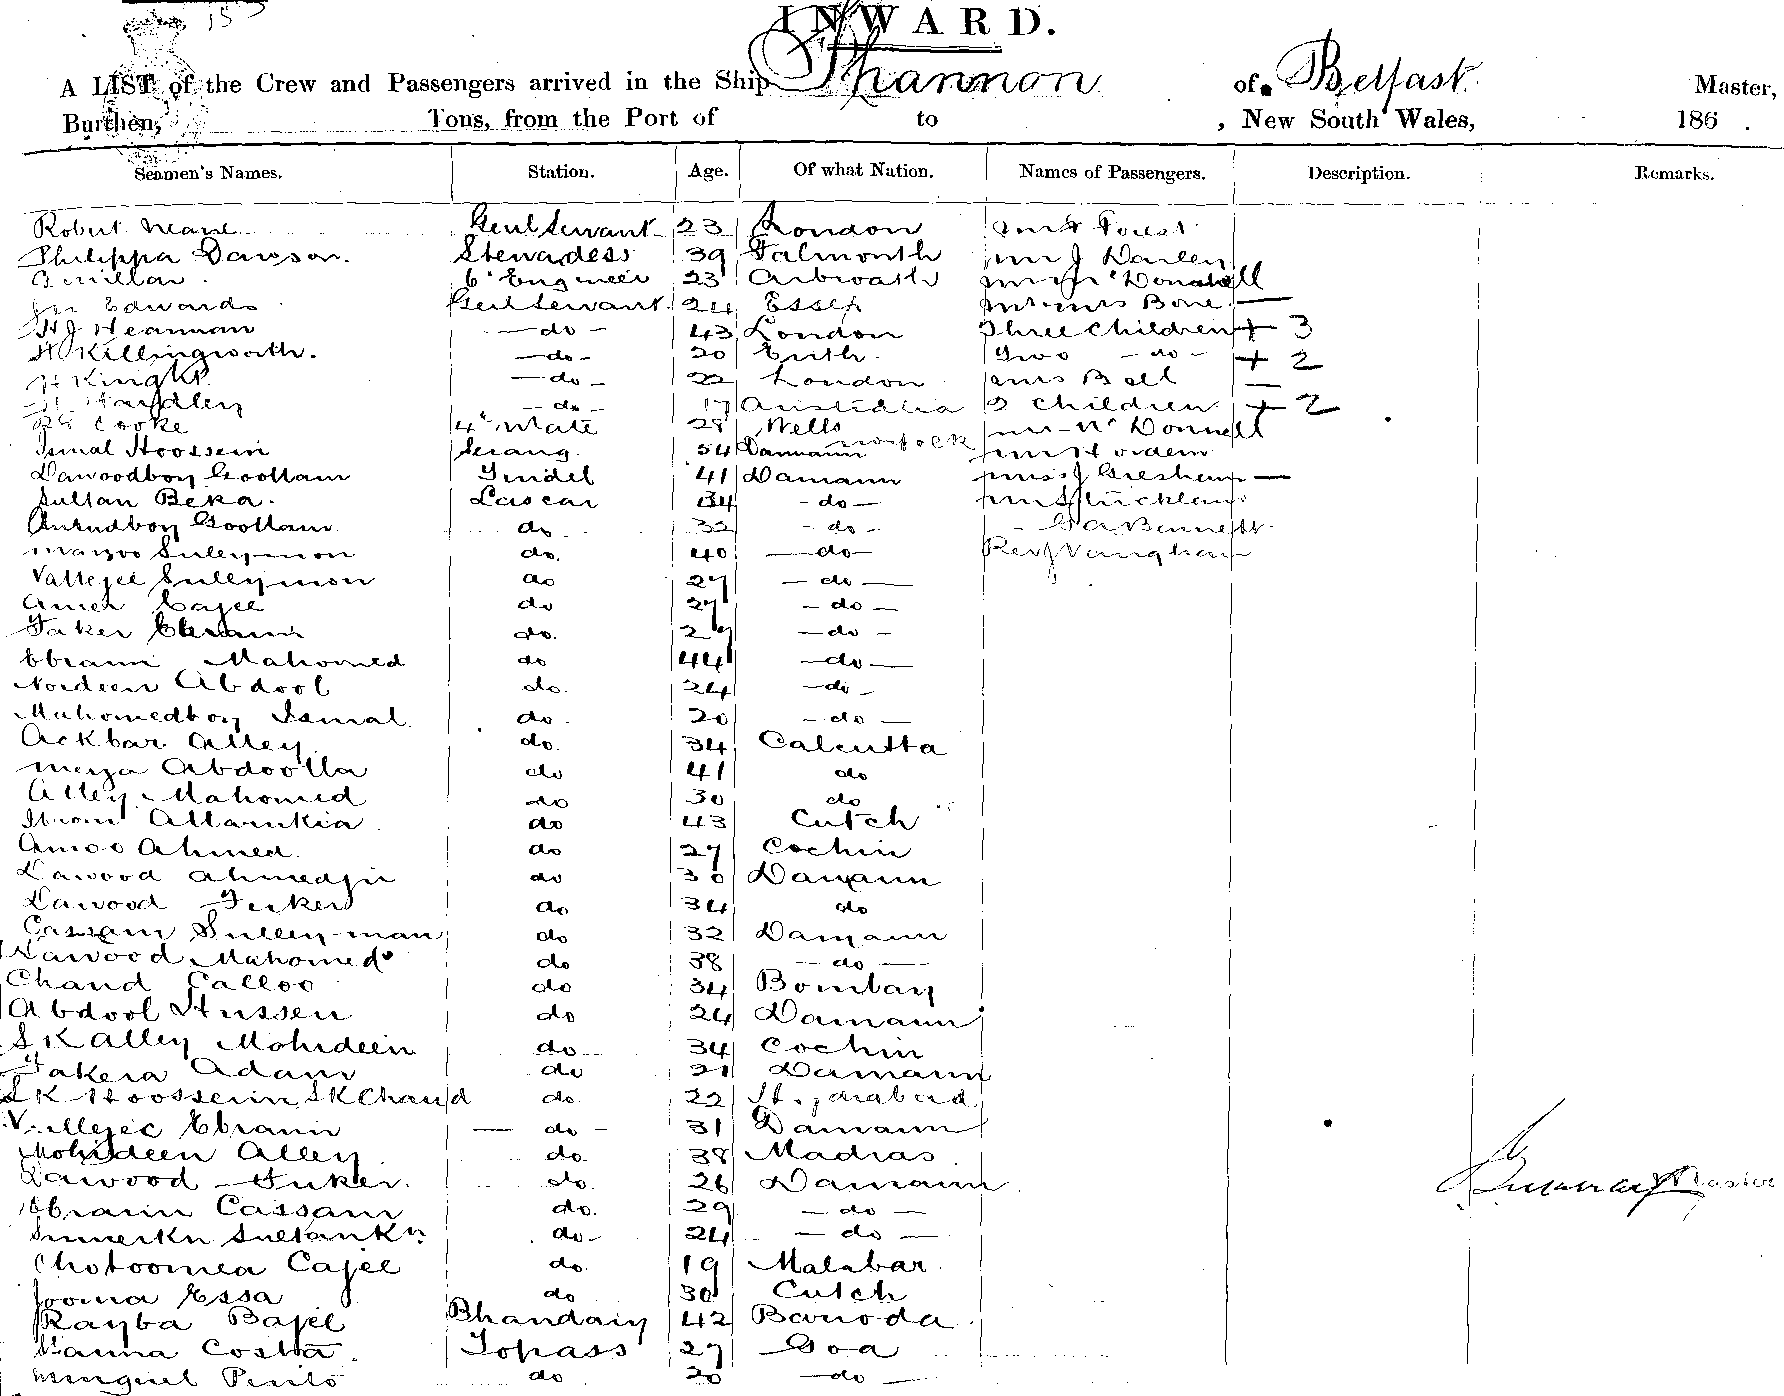 15
INWARD.
A LIST of the Crew and Passengers arrived in the Ship Shannon of Belfast Master,
Burthen, Tons, from the Port of to , New South Wales, 186 .
Seamen's Names. Station. Age. Of what Nation. Names of Passengers. Description. Remarks.
Robert Genl Servant 23 London
Philippa Dawson. Stewardess 39 Falmouth
6" Engineer 23 Arbroath
Edwards Genl Servant 24 Essex Bone —
H J Heannan — do — 43 London Three Children + 3
H Killingworth. — do — 20 Erith. Two — do — + 2
H Knight — do — 22 London Bell —
H Handley — do — 17 Australia 2 Children + 2
Cooke 4" Mate 28 Wells Norfolk
Ismal Hoossein Serang. 54 Damann
Dawoodboy Goollam Tindel 41 Damann Miss J Gresham —
Sultan Beka. Lascar 34 — do —
Goollam do 32 — do — Bennett
Suleymon do. 40 — do — Rev J Vaughan
Vallejee Sulleymon do 27 — do —
Amer Cajee do 27 — do —
Faker Ebraim do. 29 — do —
Ebraim Mahomed do 44 — do —
Nordeen Abdool do. 24 — do —
Mahomedboy Ismal do. 20 — do —
Ackbar Alley do. 34 Calcutta
Abdoolla do 41 do
Alley Mahomed do 30 do
do 43 Cutch
Amoo Ahmed. do 27 Cochin
Dawood Ahmedjie do 30 Damann
Dawood do 34 do
Cassam Sulleyman do 32 Damann
Dawood Mahomed do 38 — do —
Chand Calloo do 34 Bombay
Abdool Hussen do 24 Damann
SK Alley Mohideen do 34 Cochin
Fakera Adam do 21 Damann
SK Hoossein SK Chand do. 22
Vallejee Ebraim — do — 31 Damann
Mohideen Alley do. 38 Madras
Dawood do. 26 Damann Master
Ebraim Cassam do. 29 — do —
do. 24 — do —
Chotoomea Cajee do. 19 Malabar.
Jooma Essa do 30 Cutch
Rayba Bajee Bhandary 42 Baroda
Costa Topass 27 Goa
Minguel Pinto do 20 — do —